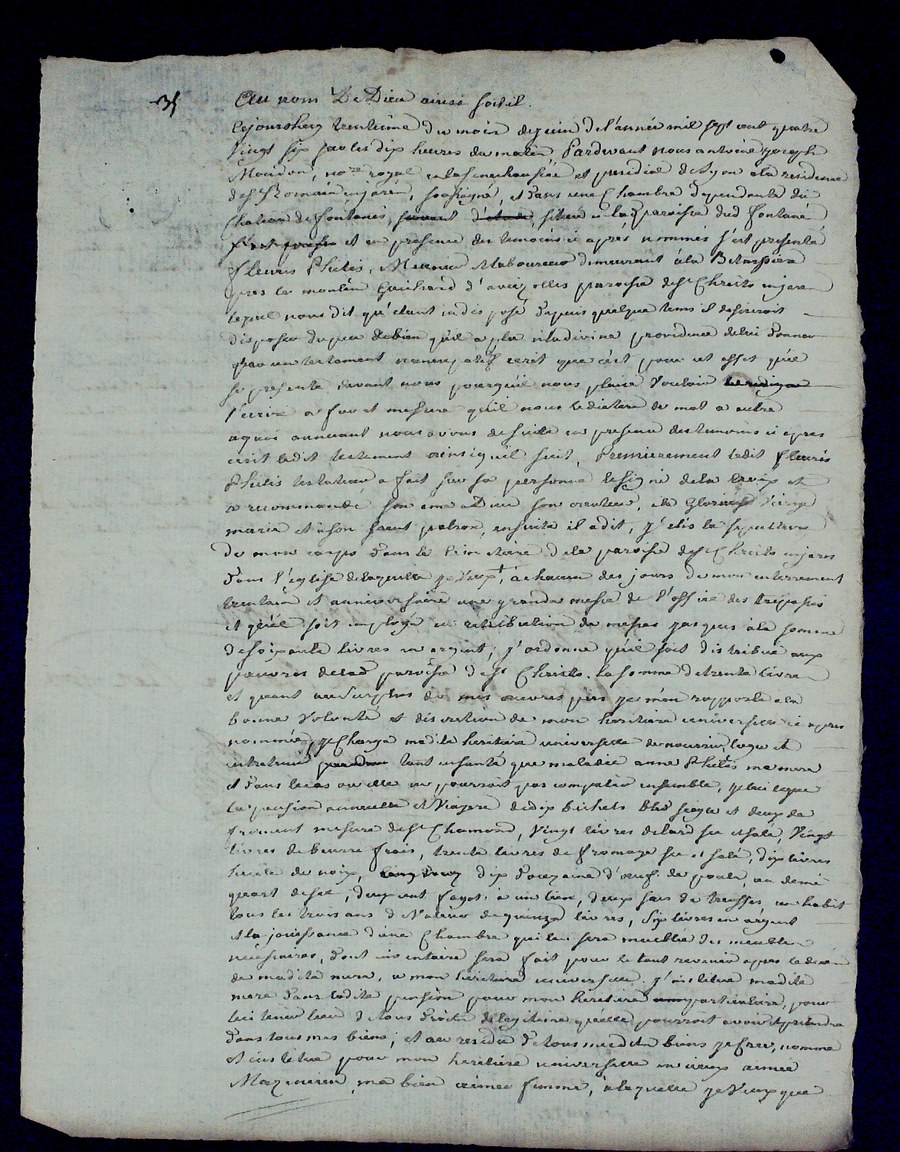 35
Au nom De Dieu ainsi soit il.
Cejourdhuy trentieme du mois de juin de l'année mil sept cent quatre
vingt six sur les dix heures du matin Pardevant nous antoine joseph
Mondon, nore royal en la senechaussée et presidial de Lyon a la residence
de St Romain en jarez, soussigné, et dans une Chambre dependante du
Chateau de fontanes, situé en la paroisse dud fontane
et en presence des temoins ci après nommés s'est presenté
fleuris Philis, demeurant a la
près le moulin paroisse de St Christo en jarez
lequel nous dit qu'étant indisposé depuis quelque tems il desireroit
disposer du peu de bien qu'il a plu a la divine providence de lui donner
par un testament nuncupatif ecrit que c'est pour cet effet qu'il
se presente devant nous pour qu'il nous plaise vouloir
l'ecrire a fur et mesure qu'il nous le dictera de mot a autre
a quoi annuant nous avons de suite en presence des temoins ci apres
ecrit ledit testament ainsi qu'il suit, Premierement ledit fleuris
Philis testateur a fait sur sa personne le signe de la croix et
a recommandé son ame a Dieu son createur, a la Glorieuse Vierge
marie et a son saint patron, ensuite il a dit, j'élis la sepulture
de mon corps dans le cimetiere de la paroisse de St Christo en jarez
dans l'église de laquelle je veux, a chacun des jours de mon enterrement
trentain et anniversaire une grande messe de l'office des trépassés
et qu'il soit employé en retribution de messes jusques a la somme
de soixante livres en argent; j'ordonne qu'il soit distribué aux
pauvres de lad paroisse de St Christo la somme de trente livres
et quant au surplus de mes œuvres pies je m'en rapporte a la
bonne volonté et discretion de mon heritiere universelle ci apres
nommée, je Charge madite heritiere universelle de nourrir, loger et
entretenir tant en santé que maladie anne Philis ma mere
et dans le cas ou elle ne pourroit pas compatir ensemble, je lui legue
la pension annuelle et viagere de dix bichets bled seigle et deux de
froment mesure de St Chamond, vingt livres de lard sec et salé, vingt
livres de beurre frais, trente livres de fromage sec et salé, dix livres
huile de noix, dix douzaine d'œufs de poule, un demi
quart de sel, deux cent fagots a un lien, deux sacs de truffes, un habit
tous les trois ans de valeur de quinze livres, six livres en argent
et la jouissance d'une Chambre qui lui sera meublée des meubles
nécessaires, dont inventaire sera fait pour le tout revenir apres le décès
de madite mere, a mon heritiere universelle, j'institue madite
mere dans ladite pension pour mon heritiere particuliere, pour
lui tenir lieu de tous droits de legitime quelle pourroit avoir et pretendre
dans tous mes biens; et au residu de tous mesdits biens je fais, nomme
et institue pour mon heritiere universelle
ma bien aimée femme, a laquelle je veux que